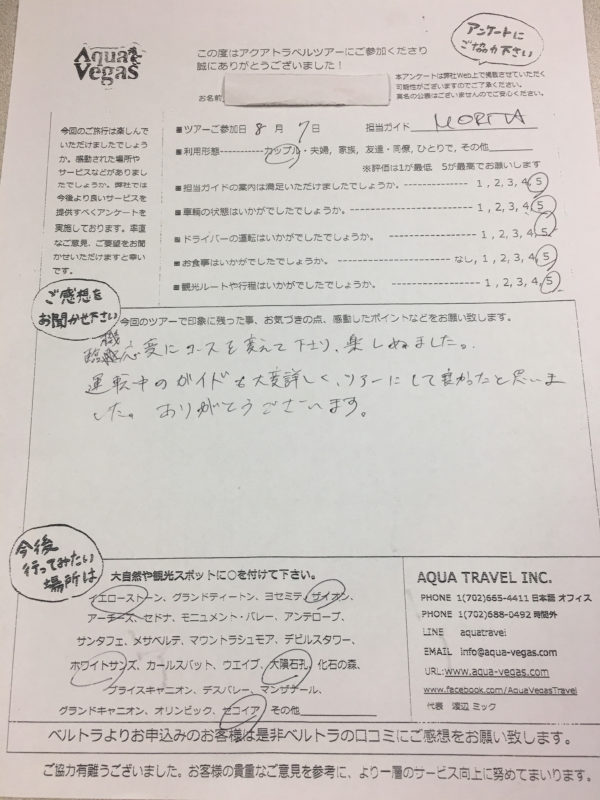 Aqua Vegas
この度はアクアトラベルツアーにご参加くださり
誠にありがとうございました！
アンケートに
ご協力下さい
お名前
本アンケートは弊社Web上で掲載させていただく
可能性がございますのでご了承ください。
実名の公表はございませんのでご安心ください。
今回のご旅行は楽しんで
いただけましたでしょう
か。感動された場所や
サービスなどがありまし
たでしょうか。弊社では
今後より良いサービスを
提供すべくアンケートを
実施しております。率直
なご意見、ご要望をお聞
かせいただけますと幸い
です。
■ツアーご参加日 8 月 7 日 担当ガイド MORITA
■利用形態-----------カップル・夫婦, 家族, 友達・同僚, ひとりで, その他
※評価は1が最低 5が最高でお願いします
■担当ガイドの案内は満足いただけましたでしょうか。---------------- 1 , 2, 3, 4, 5
■車輌の状態はいかがでしたでしょうか。---------------- 1 , 2, 3, 4, 5
■ドライバーの運転はいかがでしたでしょうか。---------------- 1 , 2, 3, 4, 5
■お食事はいかがでしたでしょうか。---------------- なし, 1 , 2, 3, 4, 5
■観光ルートや行程はいかがでしたでしょうか。---------------- 1 , 2, 3, 4, 5
ご感想を
お聞かせ下さい
今回のツアーで印象に残った事、お気づきの点、感動したポイントなどをお願い致します。
臨機応変にコースを変えて下さり、楽しめました。
運転中のガイドも大変詳しく、ツアーにして良かったと思いま
した。ありがとうございます。
今後
行ってみたい
場所は
大自然や観光スポットに○を付けて下さい。
イエローストーン、グランドティートン、ヨセミテ、ザイオン、
アーチーズ、セドナ、モニュメント・バレー、アンテロープ、
サンタフェ、メサベルデ、マウントラシュモア、デビルスタワー、
ホワイトサンズ、カールスバット、ウエイブ、大隕石孔、化石の森、
ブライスキャニオン、デスバレー、マンザナール、
グランドキャニオン、オリンピック、セコイア その他
AQUA TRAVEL INC.
PHONE 1(702)665-4411 日本語 オフィス
PHONE 1(702)688-0492 時間外
LINE aquatravel
EMAIL info@aqua-vegas.com
URL:www.aqua-vegas.com
www.facebook.com/AquaVegasTravel
代表 渡辺 ミック
ベルトラよりお申込みのお客様は是非ベルトラの口コミにご感想をお願い致します。
ご協力有難うございました。お客様の貴重なご意見を参考に、より一層のサービス向上に努めてまいります。